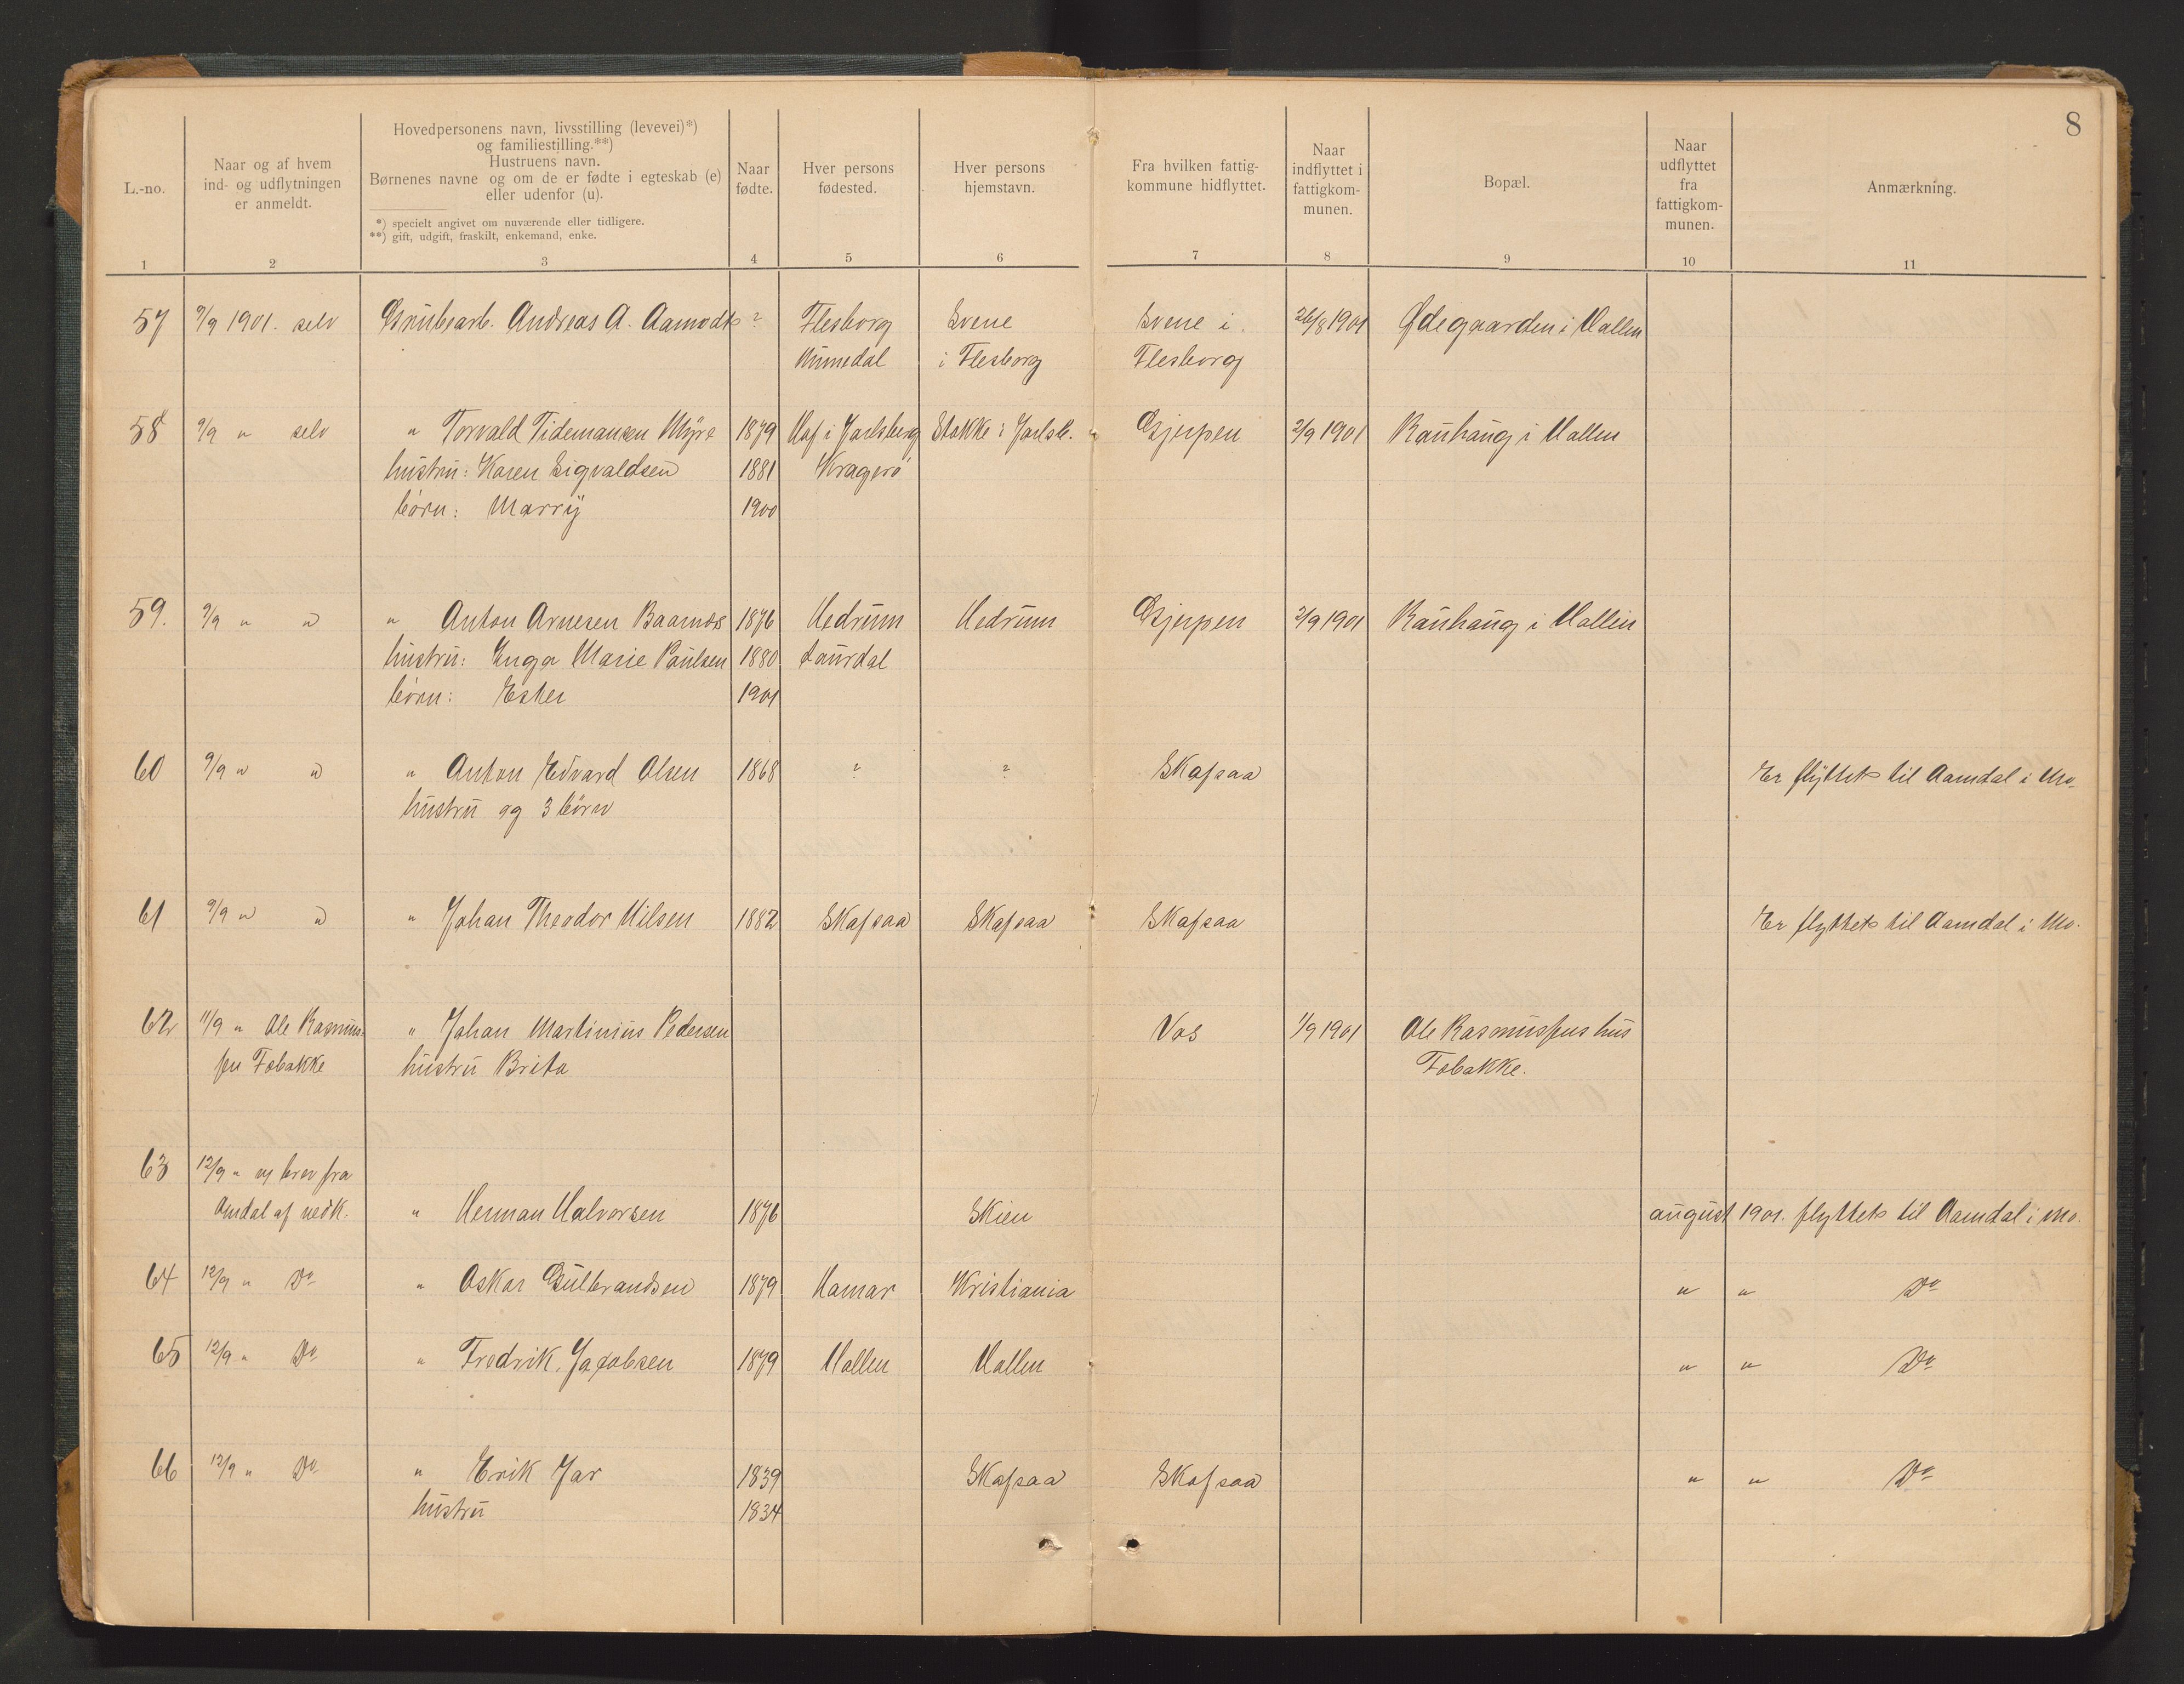 8
L.-no.
Naar og af hvem
ind- og udflytningen
er anmeldt.
Hovedpersonens navn, livsstilling (levevei)*)
og familiestilling.**)
Hustruens navn.
Børnenes navne og om de er fødte i egteskab (e)
eller udenfor (u).
*) specielt angivet om nuværende eller tidligere.
**) gift, udgift, fraskilt, enkemand, enke.
Naar
fødte.
Hver persons
fødested.
Hver persons
hjemstavn.
Fra hvilken fattig-
kommune hidflyttet.
Naar
indflyttet i
fattigkom-
munen.
Bopæl.
Naar
udflyttet
fra
fattigkom-
munen.
Anmærkning.
1 2 3 4 5 6 7 8 9 10 11
57 9/9 1901. selv Grubearb. Andreas A. Aamodt ? Flesborg Svene Svene i 26/8 1901 Ødegaarden i Hallen
Numedal i Flesborg Flesborg
58 9/9 " selv " Torvald Tidemansen Myre 1879 Haf i Jarlsberg Stokke i Jarlsb. Gjerpen 2/9 1901 Rauhaug i Hallen
hustru: Karen Sigvaldsen 1881 Kragerø
børn: Marry 1900
59. 9/9 " " " Anton Arnesen Baarnes 1876 Hedrum Hedrum Gjerpen 2/9 1901 Rauhaug i Hallin
hustru: Inga Marie Paulsen 1880 Laurdal
børn: Ester 1901
60 9/9 " " " Anton Edvard Olsen 1868 ? ? Skafsaa Er flyttet til Aamdal i Mo.
hustru og 3 børn
61 9/9 " " " Johan Theodor Nilsen 1882 Skafsaa Skafsaa Skafsaa Er flyttet til Aamdal i Mo.
62 11/9 " Ole Rasmus- " Johan Martinius Pedersen Vos 1/9 1901 Ole Rasmussens hus
sen Tobakke hustru Brita Tobakke.
63 12/9 " brev fra
Amdal af " Herman Halvorsen 1876 Skien august 1901. flyttet til Aamdal i Mo.
64 12/9 " Do " Oskar Gulbrandsen 1879 Hamar Kristiania " " Do
65 12/9 " Do " Fredrik Jacobsen 1879 Hallen Hallen " " Do
66 12/9 " Do " Erik Jar 1839 Skafsaa Skafsaa " " Do
hustru 1834